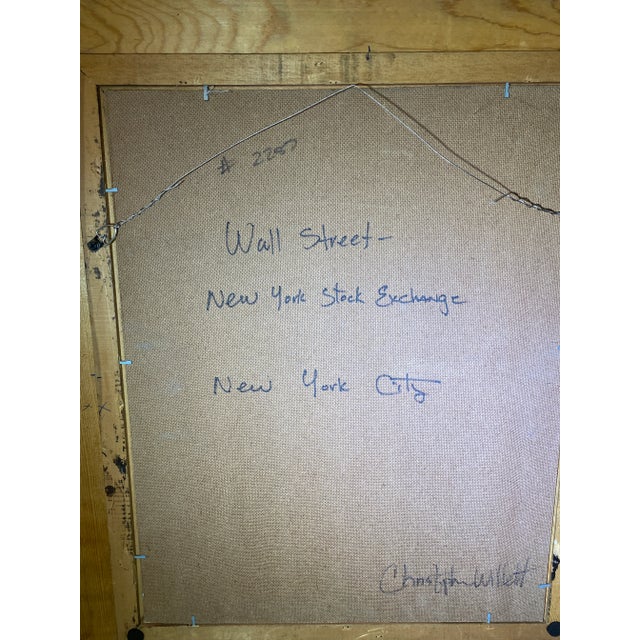 # 2287
Wall Street-
New York Stock Exchange
New York City
Christopher Willett